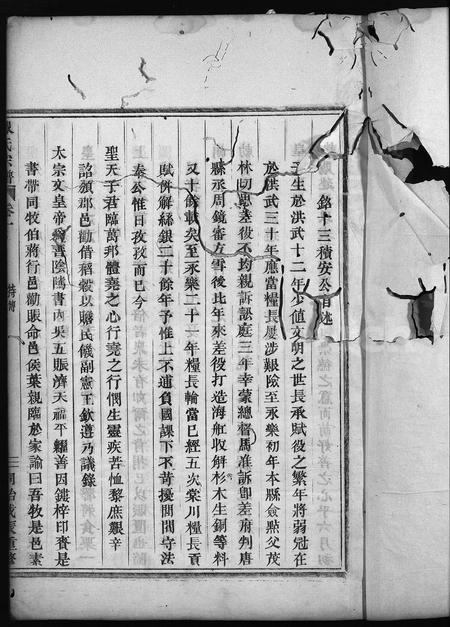 銘十三積安公自述
生於洪武十二年少值文明之世長承賦役之繁年將弱冠在
於洪武三十年應當糧長屢涉艱險至永樂初年本縣僉㸃父茂
林切思差役不均親訴誤庭三年幸蒙總督馬准訴卽差府判唐
縣丞周鏡審方雪後比年來差役打造海舡收觧杉木生銅等料
又十餘載矣至永樂二十一年糧長輪當已經五次棠川糧長貢
賦觧觧絲銀二十餘年予惟上不逋負國課下不苛擾閭閻守法
奉公惟日孜孜而已今
聖天子君臨萬邦體堯之心行堯之行憫生靈疾苦恤黎庶艱辛
詔頒郡邑勸借稻穀以賑民儀副憲王欽遵乃議錄
太宗文皇帝善陰隲書內吳五賑濟天福平糶善因鏤梓印賚是
書帶同牧伯蔣行邑勸賑命邑侯葉親臨於家諭曰吾牧是邑素
氏宗譜
卷一
同治戊辰重修